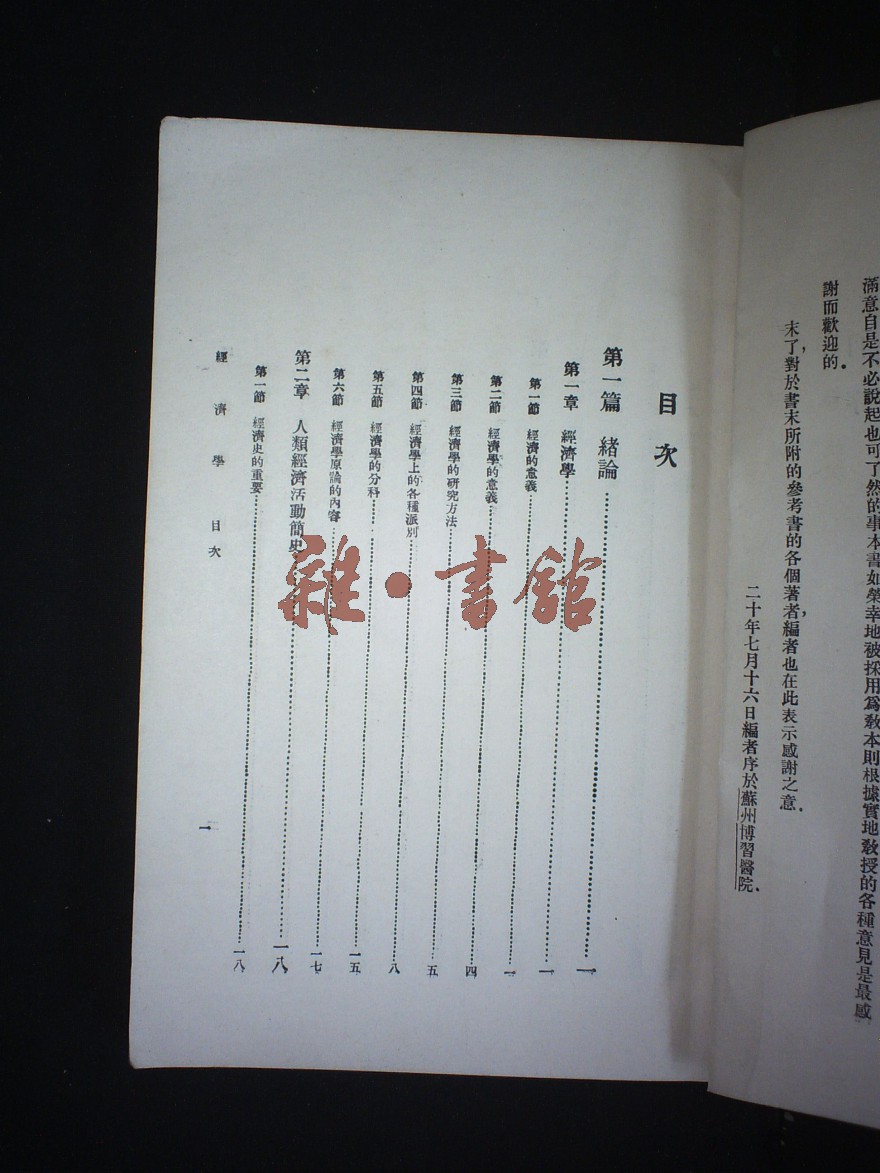 滿意自是不必說起也可了然的事本書如榮幸地被採用爲敎本則根據實地敎授的各種意見是最感
謝而歡迎的．
末了，對於書末所附的參考書的各個著者，編者也在此表示感謝之意．
二十年七月十六日編者序於蘇州博習醫院．
目次
第一篇 緒論……一
第一章 經濟學……一
第一節 經濟的意義……一
第二節 經濟學的意義……四
第三節 經濟學的研究方法……五
第四節 經濟學上的各種派別……八
第五節 經濟學的分科……一五
第六節 經濟學原論的內容……一七
第二章 人類經濟活動簡史……一八
第一節 經濟史的重要……一八
經濟學 目次
一
雜·書館